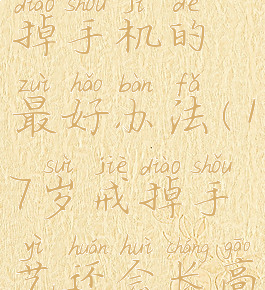 diào shǒu jī de
掉手机的
zuì hǎo bàn fǎ
最好办法(1
suì jiè diào shǒu
7岁戒掉手
yì huán huì cháng gāo
艺还会长高